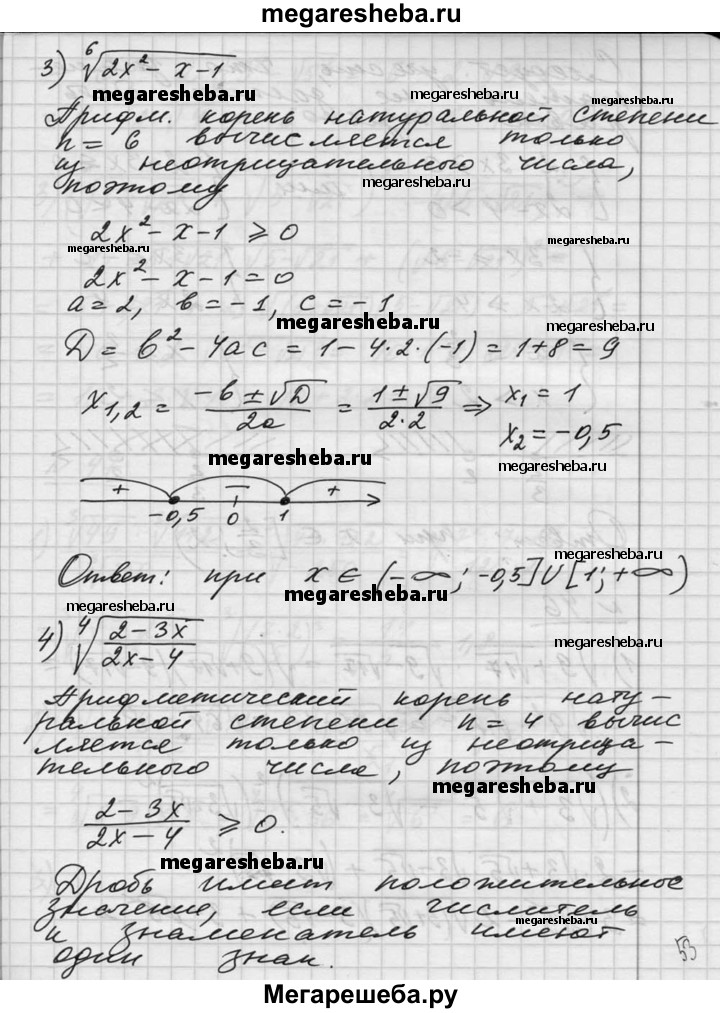 megaresheba.ru
3) ⁶√(2x² − x − 1)
Арифм. корень натуральной степени
n = 6 вычисляется только
из неотрицательного числа,
поэтому
megaresheba.ru
2x² − x − 1 ⩾ 0
megaresheba.ru
2x² − x − 1 = 0
a = 2, b = −1, c = −1
megaresheba.ru
megaresheba.ru
D = b² − 4ac = 1 − 4·2·(−1) = 1+8 = 9
x₁,₂ = (−b ± √D)/(2a) = (1 ± √9)/(2·2) ⇒ x₁ = 1
x₂ = −0,5
megaresheba.ru
megaresheba.ru
+ − +
−0,5 0 1
megaresheba.ru
Ответ: при x ∈ (−∞; −0,5] ∪ [1; +∞)
megaresheba.ru
megaresheba.ru
4) ⁴√((2 − 3x)/(2x − 4))
megaresheba.ru
Арифметический корень нату-
ральной степени n = 4 вычис
ляется только из неотрица-
тельного числа, поэтому
megaresheba.ru
(2 − 3x)/(2x − 4) ⩾ 0.
megaresheba.ru
Дробь имеет положительное
значение, если числитель
megaresheba.ru
и знаменатель имеют
один знак.
53
Мегарешеба.ру